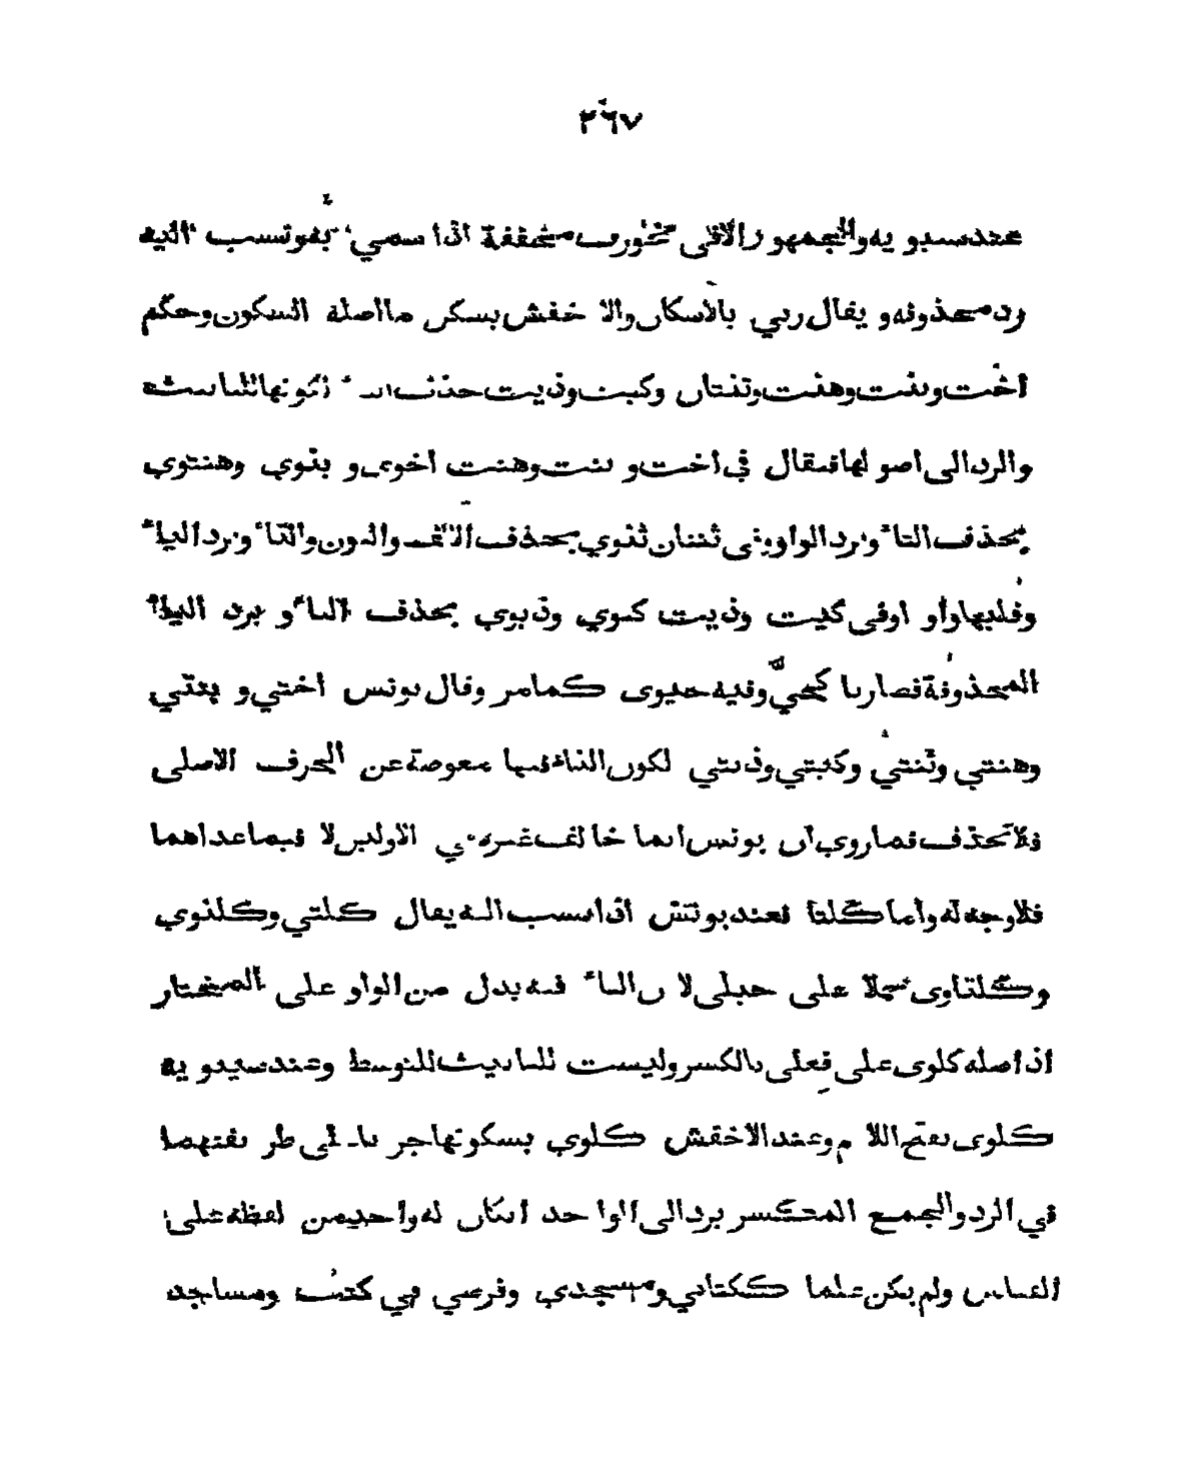 ٢٦٧
عند سيبويه والجمهور الا في نحو رب مخففة اذا سمي به ونسب اليه
رد محذوفه ويقال ربي بالاسكان والاخفش يسكن ما اصله السكون وحكم
اخت وبنت وهنت وثنتان وكيت وذيت حذف التاء لكونها للتانيث
والرد الى اصولها فيقال في اخت وبنت وهنت اخوي وبنوي وهنتوي
بحذف التاء ورد الواو وفي ثنتان ثنوي بحذف الالف والنون والتاء ورد الياء
وقلبها واوا وفي كيت وذيت كيوي وذيوي بحذف التاء ورد الياء
المحذوفة فصاربا كحيّ وفيه حيوى كما مر وقال يونس اختي وبنتي
وهنتي وثنتي وكيتي وذيتي لكون التاء فيها معوضة عن الحرف الاصلى
فلا تحذف فما روي ان يونس انما خالف غيره في الاولين لا فيما عداهما
فلا وجه له واما كلتا فعند يونس اذا نسب اليه يقال كلتي وكلتوي
وكلتاوى حملا على حبلى لان التاء فيه بدل من الواو على المختار
اذ اصله كلوى على فعلى بالكسر وليست للتانيث للتوسط وعند سيبويه
كلوى بفتح اللام وعند الاخفش كلوي بسكونها جريا على طريقتهما
في الرد والجمع المتكسر يرد الى الواحد ان كان له واحد من لفظه على
القياس ولم يكن علما ككتابي ومسجدي وفرضي في كتب ومساجد